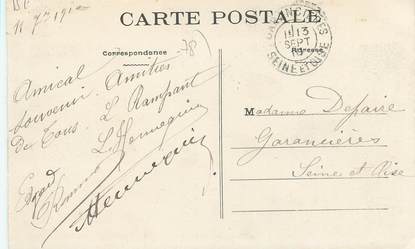 11 7re 191
CARTE POSTALE
Correspondance
Adresse
13
SEPT
SEINE ET OISE
78)
Amical
Souvenir Amitiés
De Tous L Rampant
L. Hennequin
Hennequin
Madame Defaire
Garancières
Seine et Oise